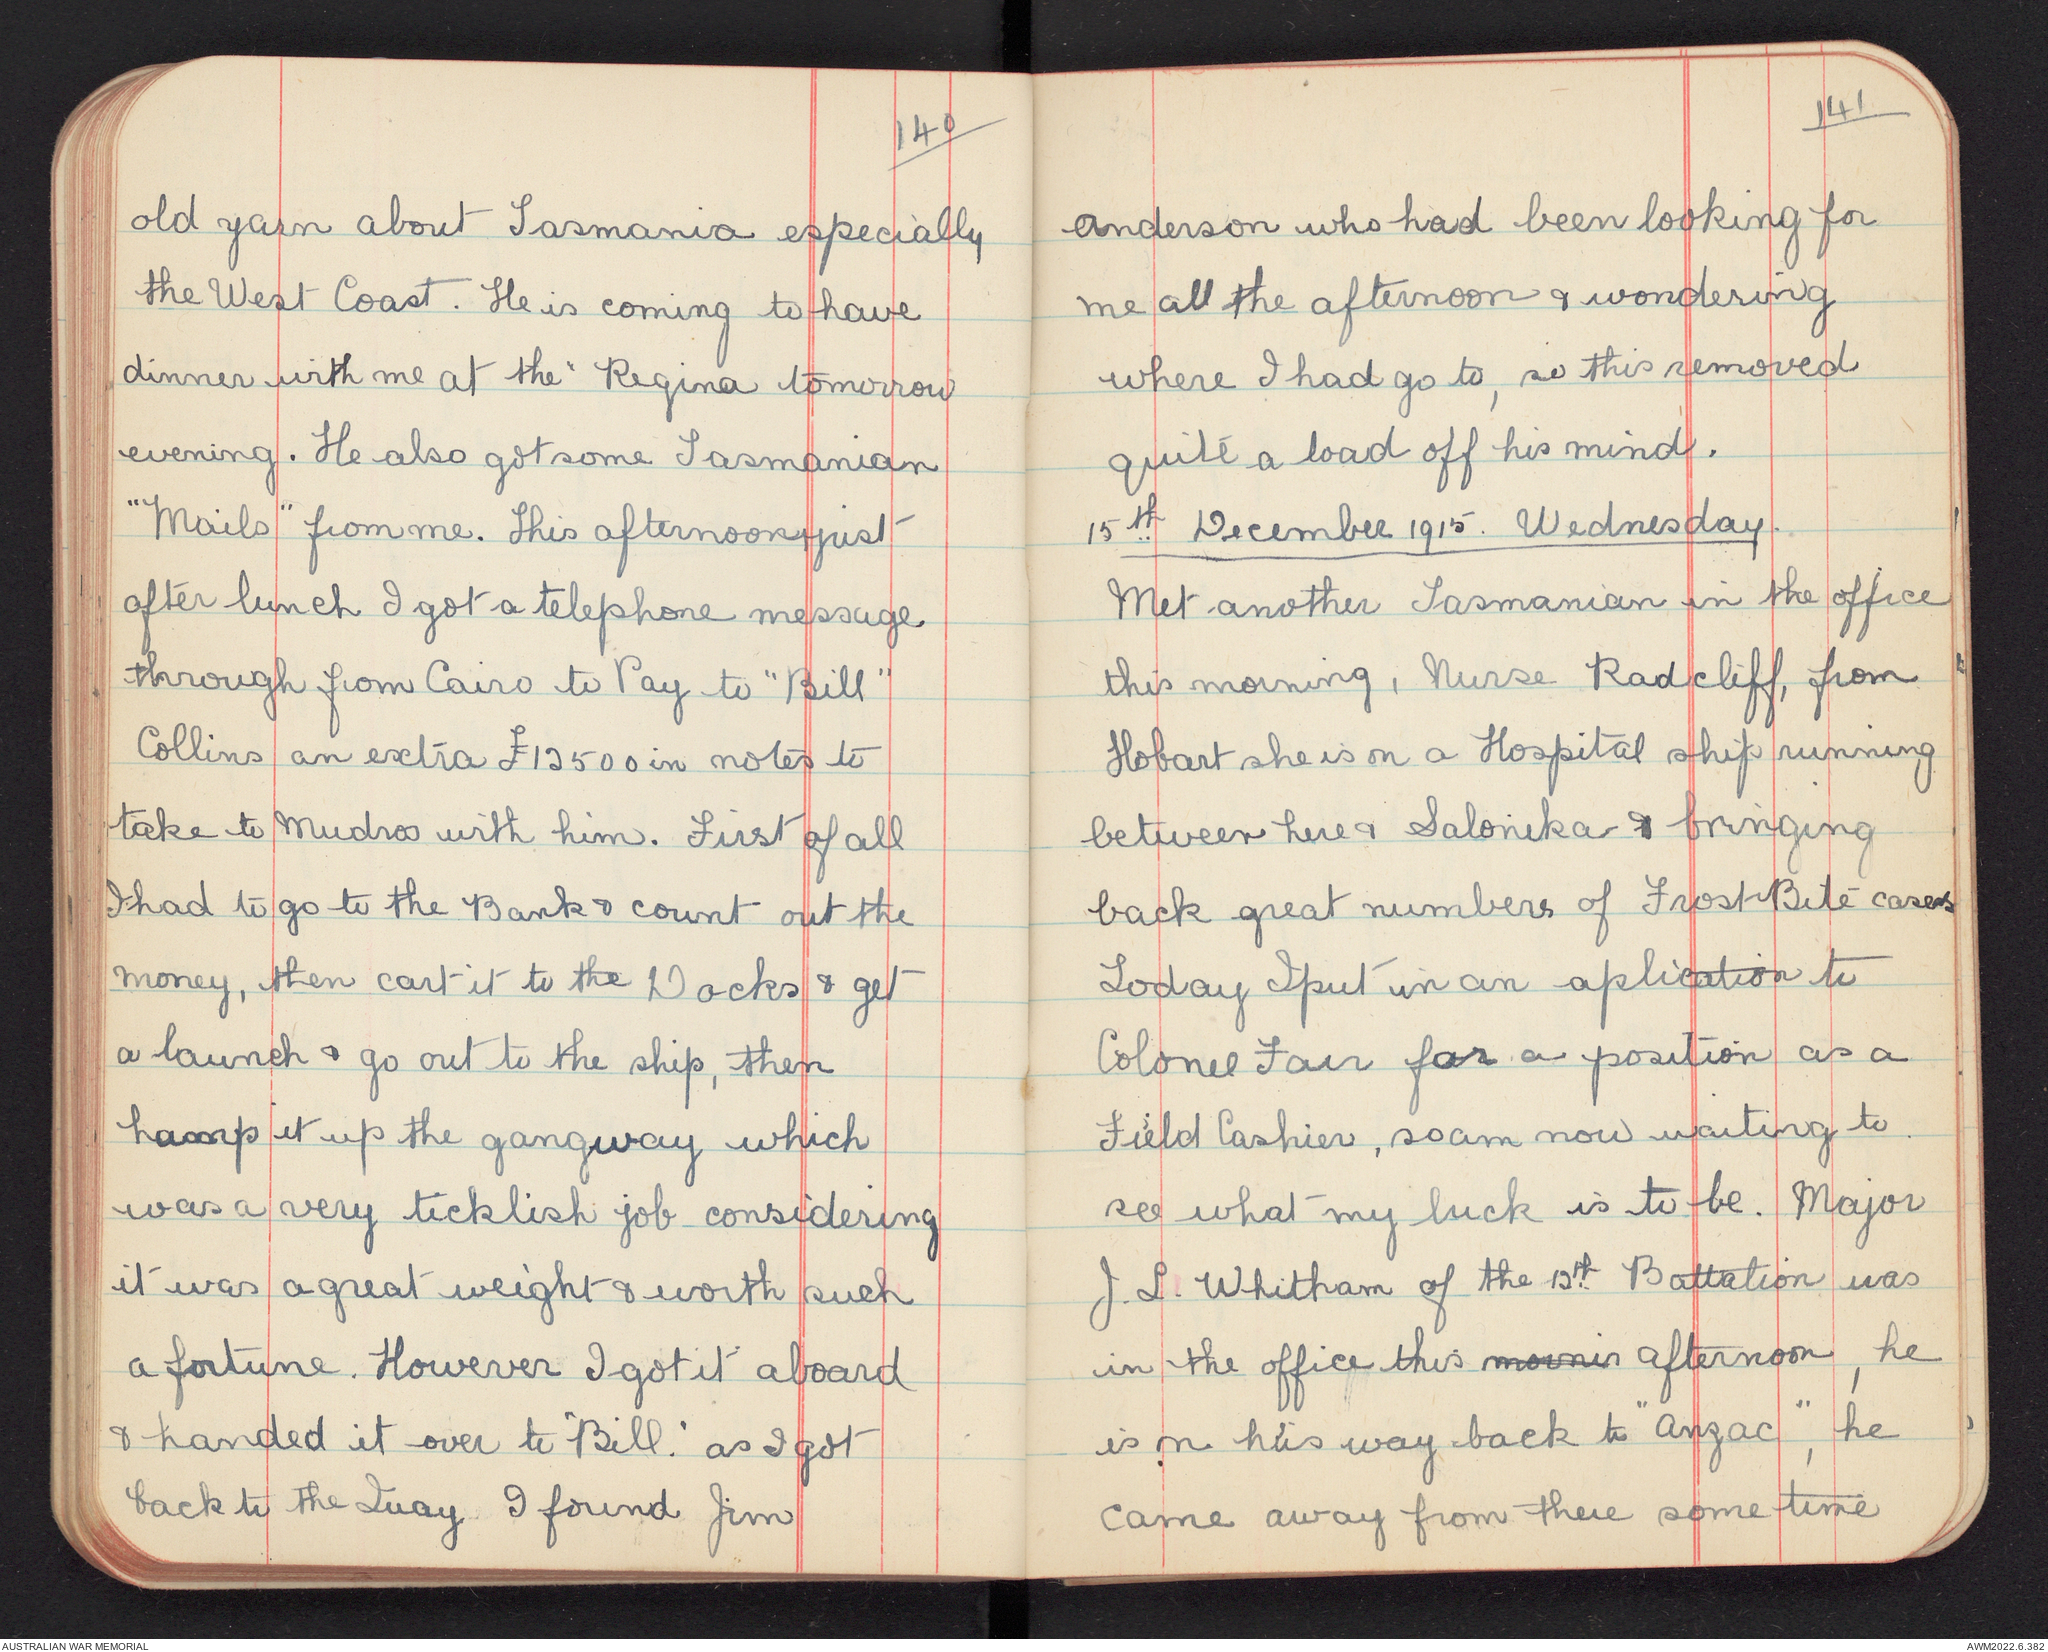 140
old yarn about Tasmania especially
the West Coast. He is coming to have
dinner with me at the "Regina tomorrow
evening. He also got some Tasmanian
"Mails" from me. This afternoon just
after lunch I got a telephone message
through from Cairo to Pay to "Bill"
Collins an extra £12500 in notes to
take to Mudros with him. First of all
I had to go to the Bank & count out the
money, then cart it to the Docks & get
a launch & go out to the ship, then
hump it up the gangway which
was a very ticklish job considering
it was a great weight & worth such
a fortune. However I got it aboard
& handed it over to "Bill." as I got
back to the Quay I found Jim
141
Anderson who had been looking for
me all the afternoon & wondering
where I had go to, so this removed
quite a load off his mind.
15th December 1915. Wednesday.
Met another Tasmanian in the office
this morning, Nurse Radcliff, from
Hobart she is on a Hospital ship running
between here & Salonika & bringing
back great numbers of Frost Bite cases
Today I put in an aplication to
Colonel Fair for a position as a
Field Cashier, so am now waiting to
see what my luck is to be. Major
J. L. Whitham of the 12th Battation was
in the office this mornin afternoon, he
is on his way back to "Anzac", he
came away from there some time
AUSTRALIAN WAR MEMORIAL
AWM2022.6.382